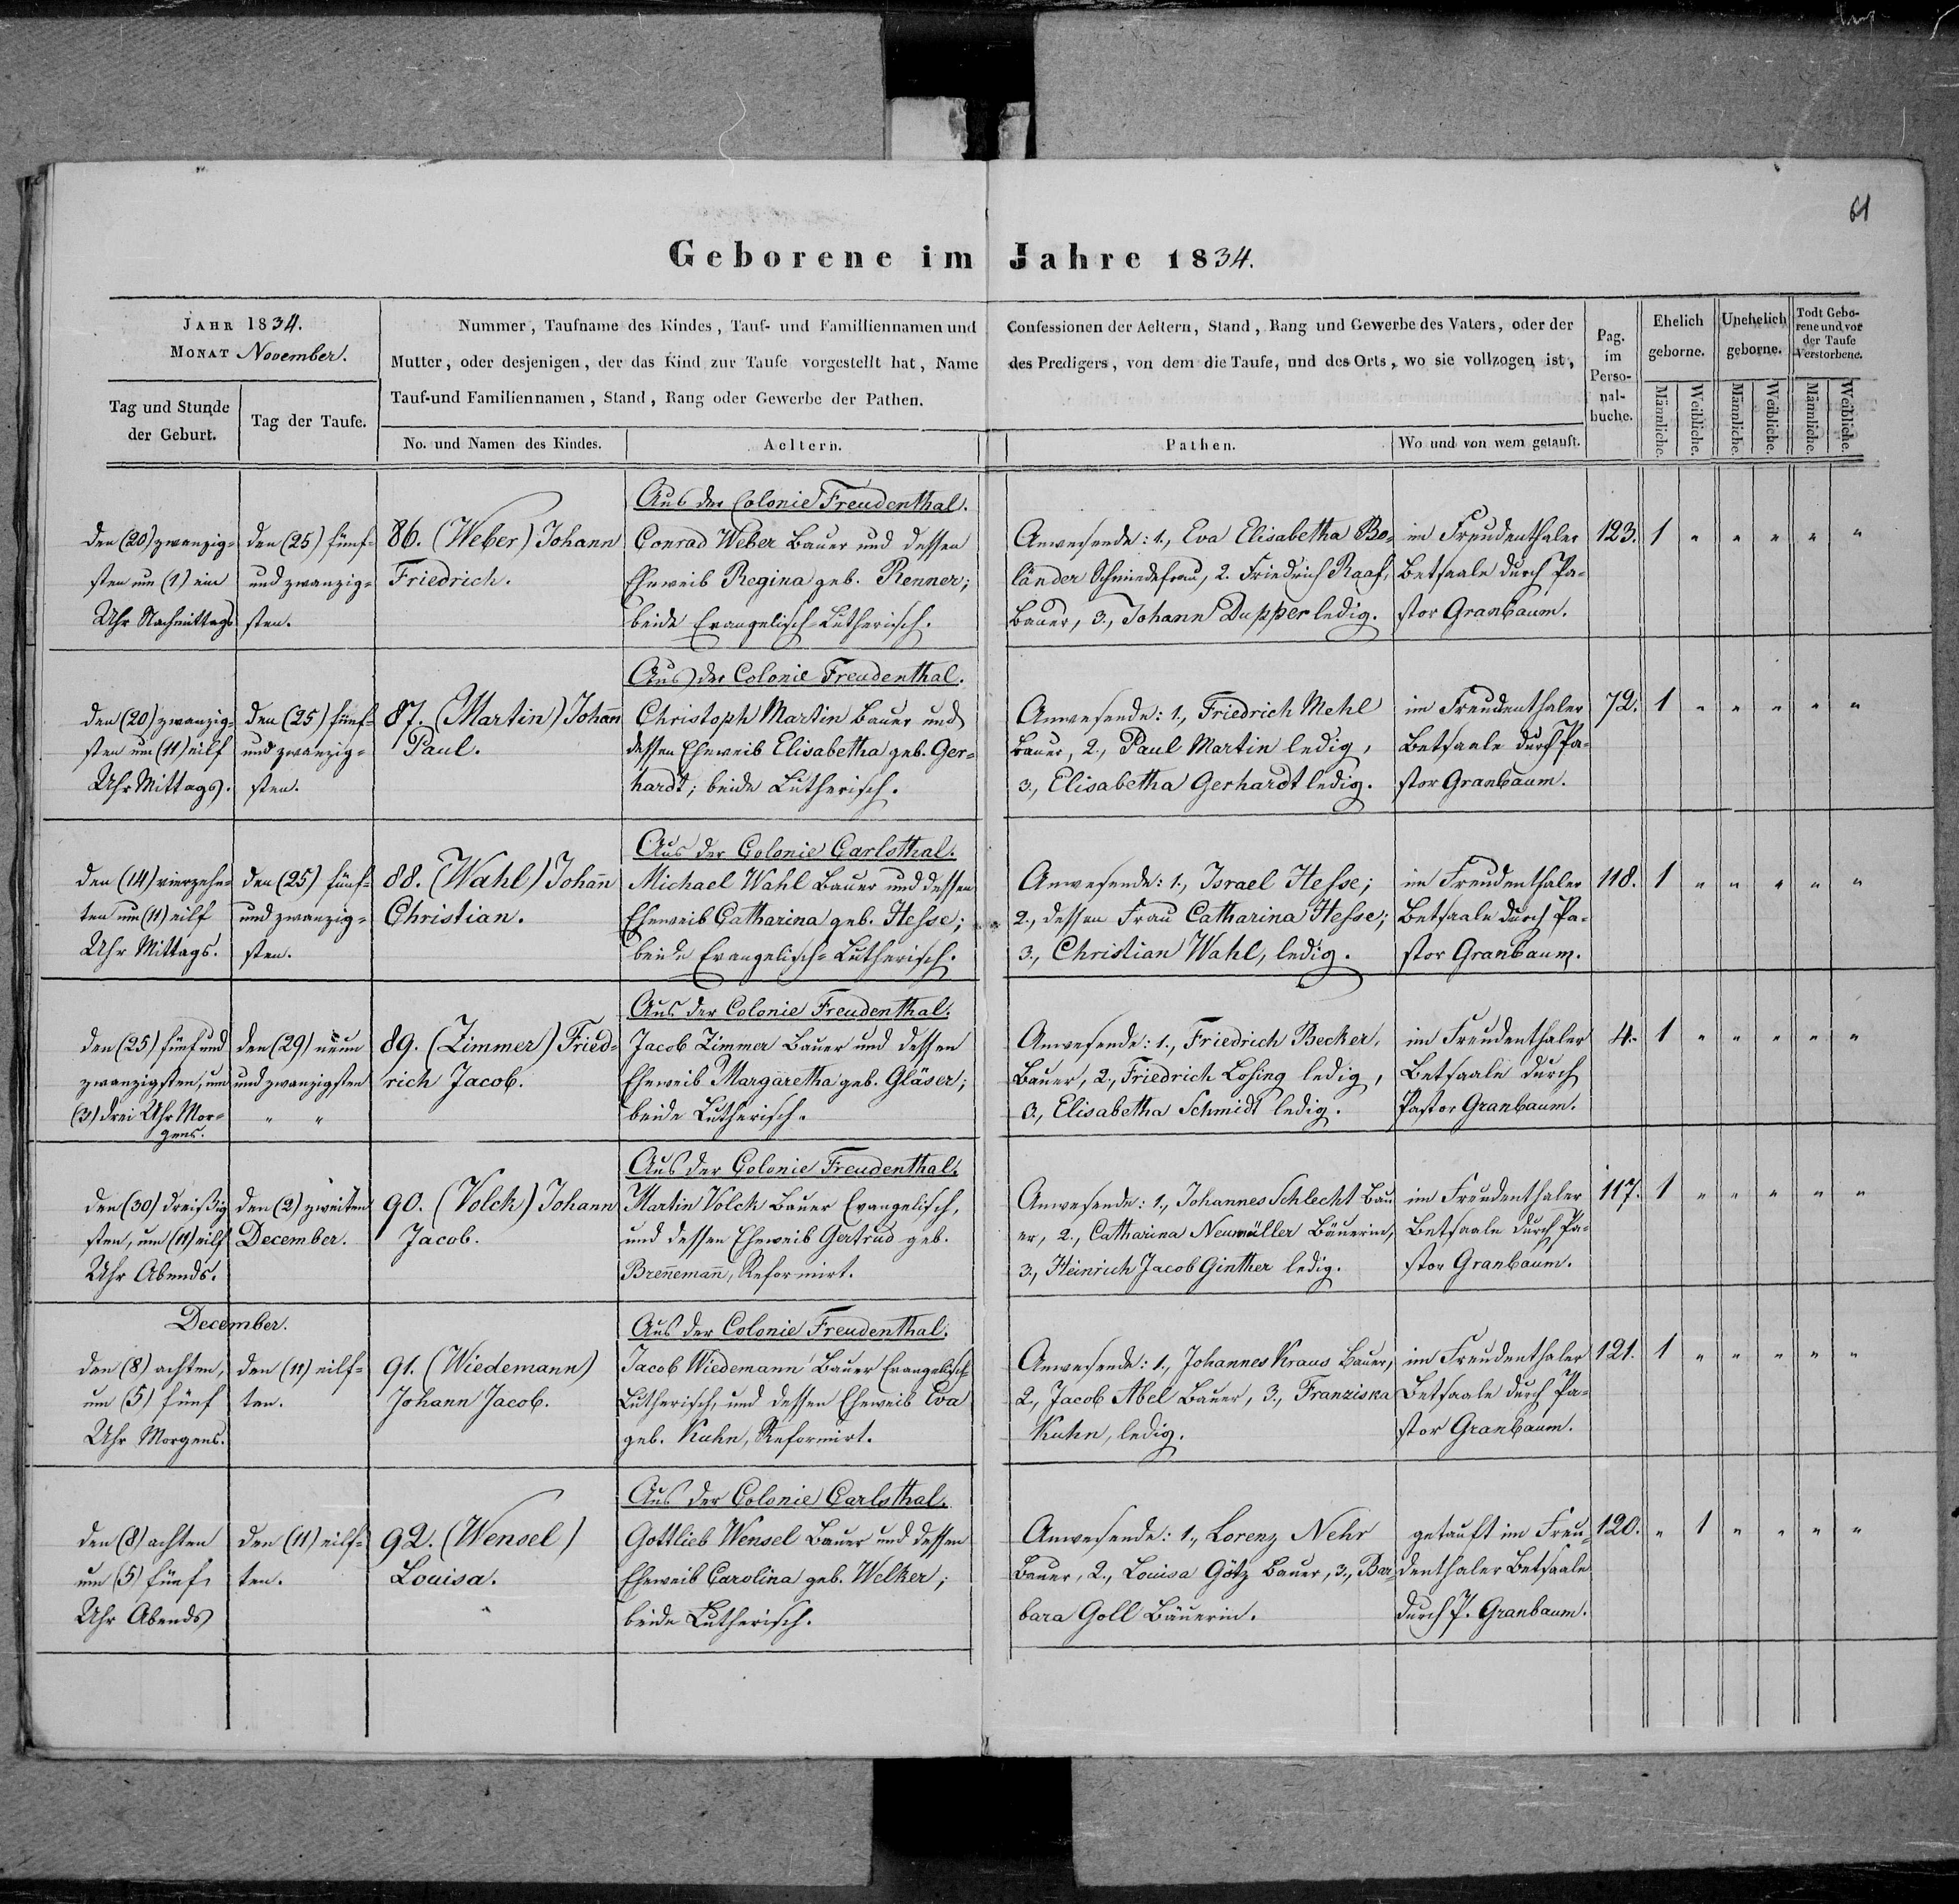 61
Geborene im Jahre 1834.
JAHR 1834.
MONAT November.
Tag und Stunde
der Geburt.
Tag der Taufe.
Nummer, Taufname des Kindes, Tauf- und Familliennamen und Confessionen der Aeltern, Stand, Rang und Gewerbe des Vaters, oder der
Mutter, oder desjenigen, der das Kind zur Taufe vorgestellt hat, Name des Predigers, von dem die Taufe, und des Orts, wo sie vollzogen ist,
Tauf-und Familiennamen, Stand, Rang oder Gewerbe der Pathen.
No. und Namen des Kindes.
Aeltern.
Pathen.
Wo und von wem getauft.
Pag.
im
Perso-
nal-
buche.
Ehelich
geborne.
Unehelich
geborne.
Todt Gebo-
rene und vor
der Taufe
Verstorbene.
Männliche.
Weibliche.
Männliche.
Weibliche.
Männliche.
Weibliche.
den (20) zwanzig-
sten um (1) ein
Uhr Nachmittags
den (25) fünf-
und zwanzig-
sten.
86. (Weber) Johann
Friedrich.
Aus der Colonie Freudenthal.
Conrad Weber Bauer und dessen
Eheweib Regina geb. Renner;
beide Evangelisch-Lutherisch.
Anwesende: 1., Eva Elisabetha Bo-
länder Schmiedefrau, 2. Friedrich Raaf,
Bauer, 3., Johann Dupper ledig.
im Freudenthaler
Betsaale durch Pa-
stor Granbaum.
123. 1 " " " " "
den (20) zwanzig-
sten um (11) eilf
Uhr Mittags.
den (25) fünf-
und zwanzig-
sten.
87. (Martin) Johañ
Paul.
Aus der Colonie Freudenthal.
Christoph Martin Bauer und
dessen Eheweib Elisabetha geb. Ger-
hardt; beide Lutherisch.
Anwesende: 1., Friedrich Mehl
Bauer, 2., Paul Martin ledig,
3., Elisabetha Gerhardt ledig.
im Freudenthaler
Betsaale durch Pa-
stor Granbaum.
72. 1 " " " " "
den (14) vierzehn-
ten um (11) eilf
Uhr Mittags.
den (25) fünf-
und zwanzig-
sten.
88. (Wahl) Johañ
Christian.
Aus der Colonie Carlsthal.
Michael Wahl Bauer und dessen
Eheweib Catharina geb. Hesse;
beide Evangelisch-Lutherisch.
Anwesende: 1., Israel Hesse;
2., dessen Frau Catharina Hesse;
3., Christian Wahl, ledig.
im Freudenthaler
Betsaale durch Pa-
stor Granbaum.
118. 1 " " " " "
den (25) fünf und
zwanzigsten, um
(3) drei Uhr Mor-
gens.
den (29) neun
und zwanzigsten
" "
89. (Zimmer) Fried-
rich Jacob.
Aus der Colonie Freudenthal.
Jacob Zimmer Bauer und dessen
Eheweib Margaretha geb. Gläser;
beide Lutherisch.
Anwesende: 1., Friedrich Becker,
Bauer, 2., Friedrich Losing ledig,
3., Elisabetha Schmidt ledig.
im Freudenthaler
Betsaale durch
Pastor Granbaum.
4. 1 " " " " "
den (30) dreißig
sten, um (11) eilf
Uhr Abends.
den (2) zweiten
December.
90. (Volck) Johann
Jacob.
Aus der Colonie Freudenthal.
Martin Volck Bauer Evangelisch,
und dessen Eheweib Gertrud geb.
Breñemañ, Reformirt.
Anwesende: 1., Johannes Schlecht Bau
er, 2., Catharina Neumüller Bäuerin,
3., Heinrich Jacob Ginther ledig.
im Freudenthaler
Betsaale durch Pa-
stor Granbaum.
117. 1 " " " " "
December.
den (8) achten,
um (5) fünf
Uhr Morgens.
den (11) eilf-
ten.
91. (Wiedemann)
Johann Jacob.
Aus der Colonie Freudenthal.
Jacob Wiedemann Bauer Evangelisch-
Lutherisch, und dessen Eheweib Eva
geb. Kuhn, Reformirt.
Anwesende: 1., Johannes Kraus Bauer,
2., Jacob Abel Bauer, 3., Franziska
Kuhn, ledig.
im Freudenthaler
Betsaale durch Pa-
stor Granbaum.
121. 1 " " " " "
den (8) achten
um (5) fünf
Uhr Abends
den (11) eilf-
ten.
92. (Wensel)
Louisa.
Aus der Colonie Carlsthal.
Gottlieb Wensel Bauer und dessen
Eheweib Carolina geb. Welker;
beide Lutherisch.
Anwesende: 1., Lorenz Nehr
Bauer, 2., Louisa Götz Bauer, 3., Bar
bara Goll Bäuerin.
getauft im Freu-
denthaler Betsaale
durch P. Granbaum.
120. " 1 " " " "